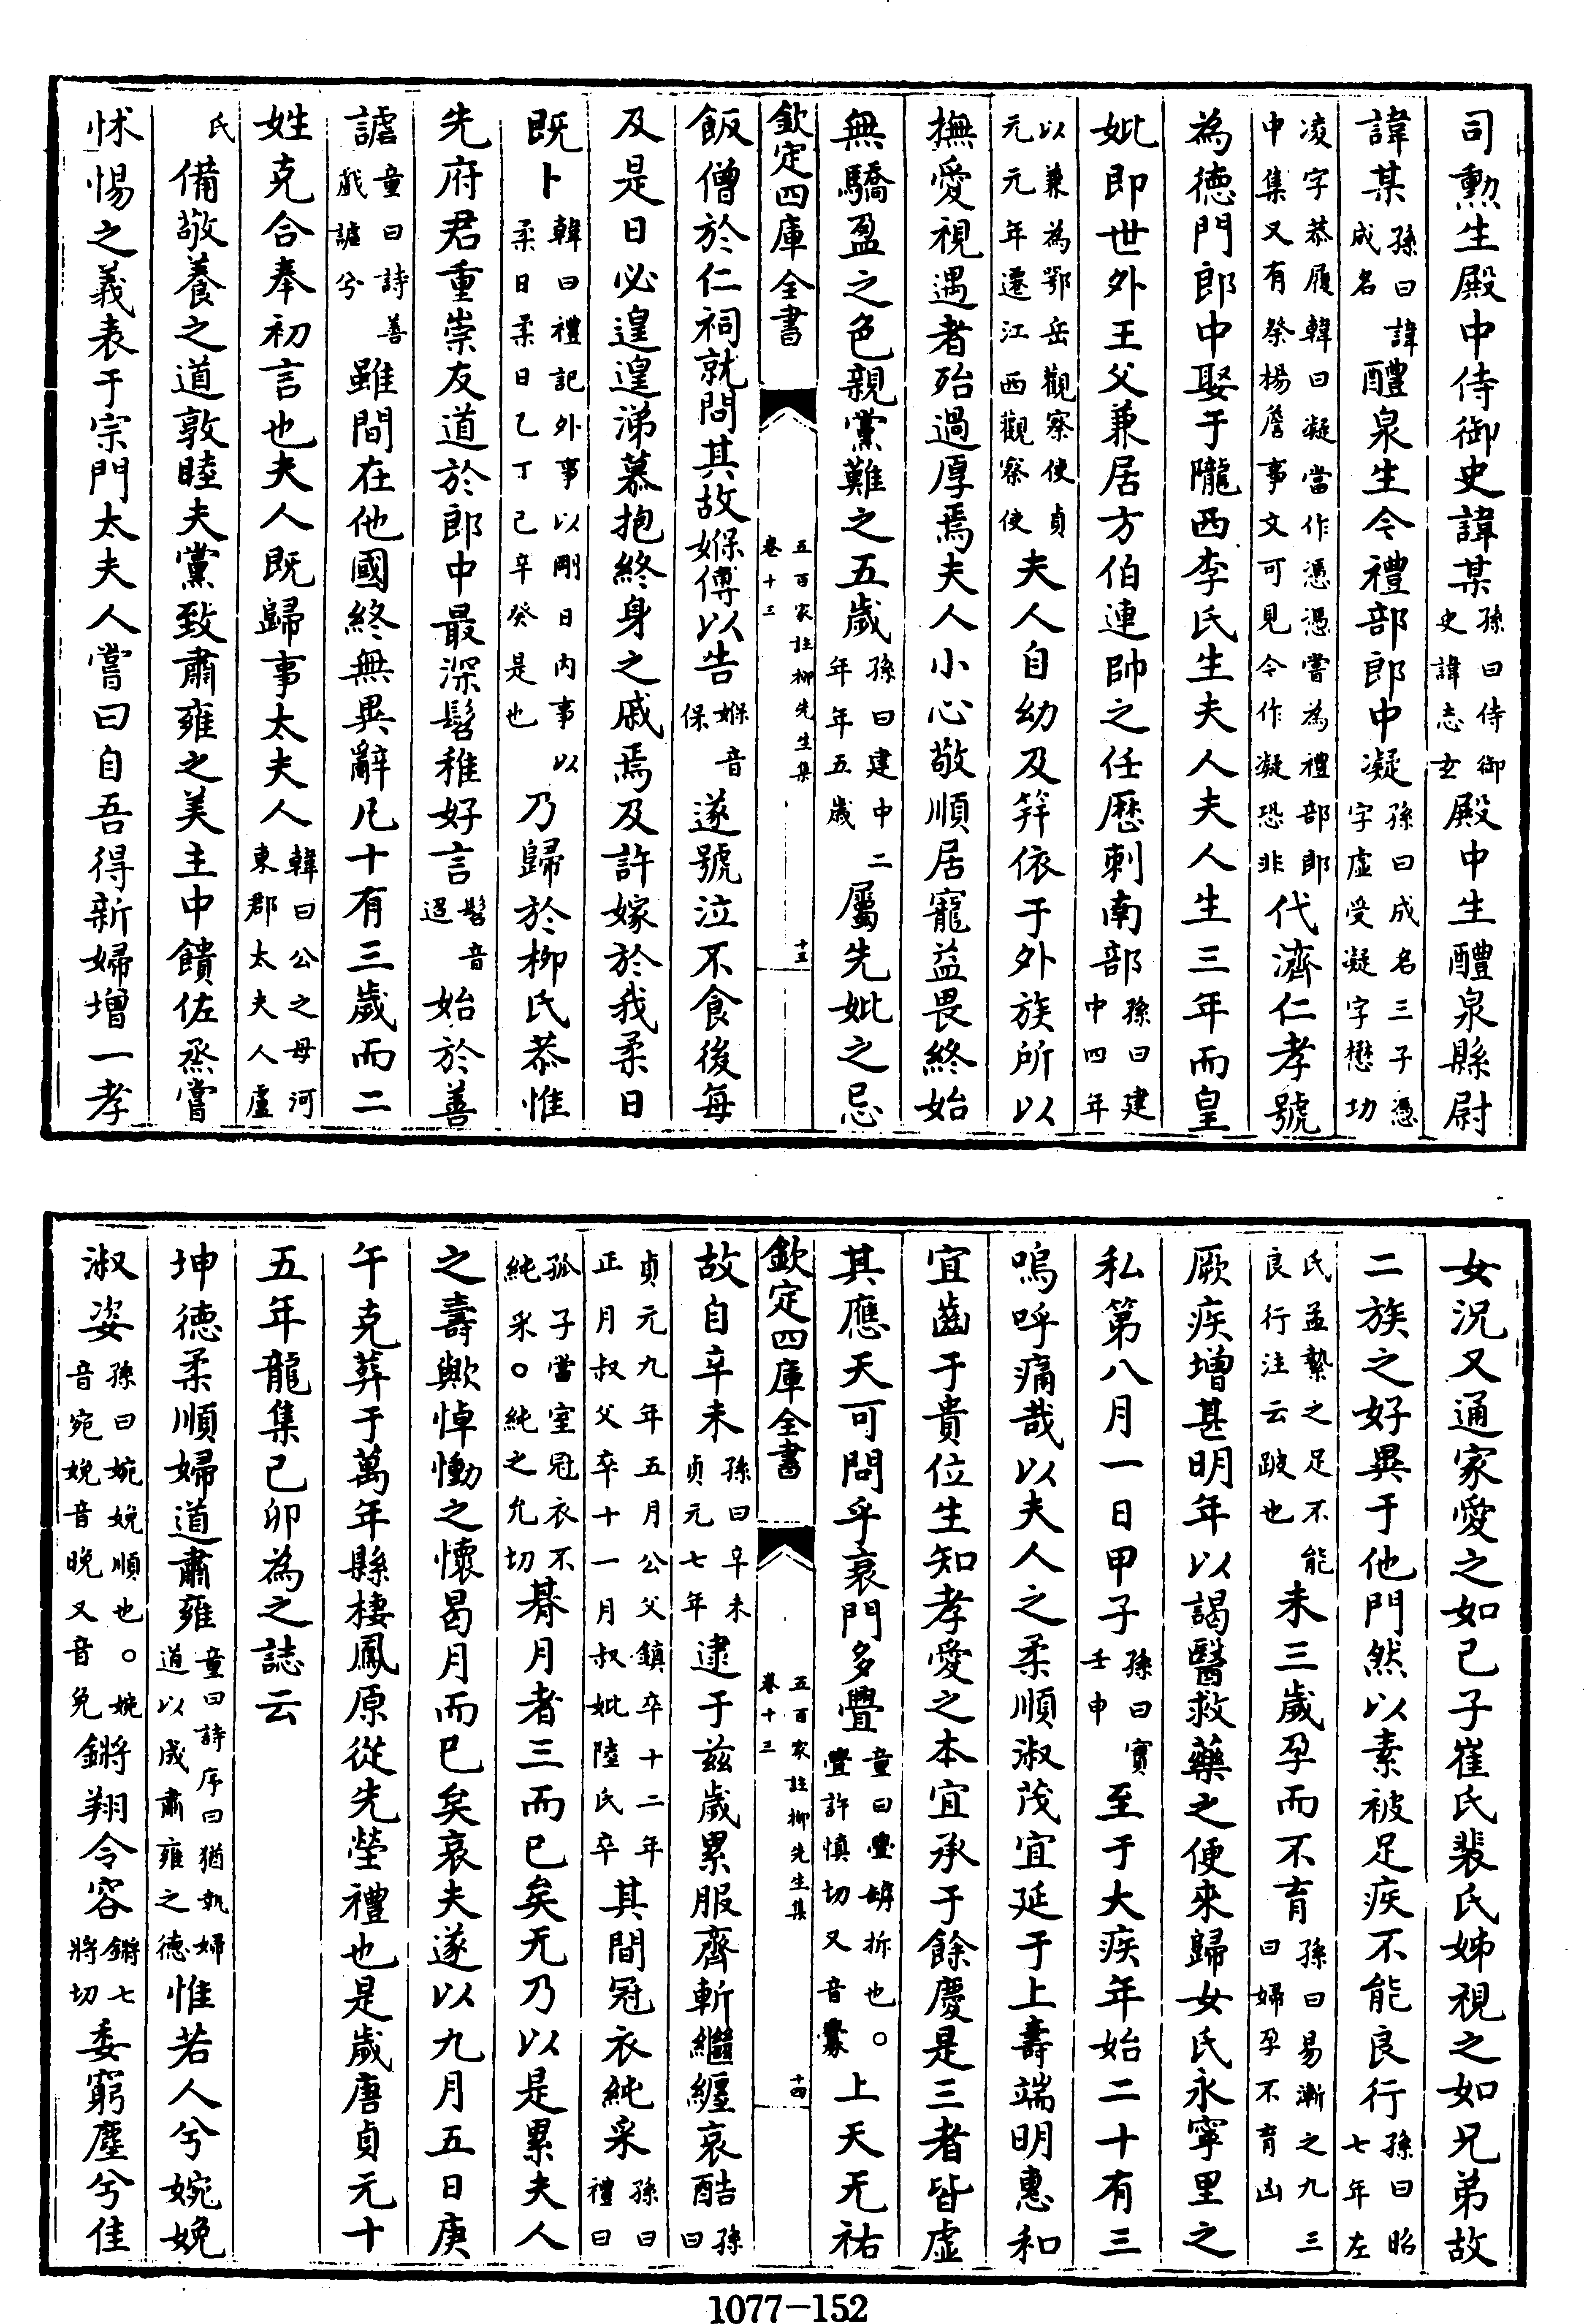 司勲生殿中侍御史諱某孫曰侍御史諱志玄殿中生醴泉縣尉
諱某孫曰諱成名醴泉生今禮部郎中凝孫曰成名三子憑字虛受凝字懋功
凌字恭履韓曰凝當作憑憑嘗為禮部郎中集又有祭楊詹事文可見今作凝恐非代濟仁孝號
為德門郎中娶于隴西李氏生夫人夫人生三年而皇
妣即世外王父兼居方伯連帥之任歷刺南部孫曰建中四年
以兼為鄂岳觀察使貞元元年遷江西觀察使夫人自幼及笄依于外族所以
撫愛視遇者殆過厚焉夫人小心敬順居寵益畏終始
無驕盈之色親黨難之五歲孫曰建中二年年五歲屬先妣之忌
欽定四庫全書
五百家註柳先生集
卷十三
十五
飯僧於仁祠就問其故媬傅以告媬音保遂號泣不食後每
及是日必遑遑涕慕抱終身之戚焉及許嫁於我柔日
既卜韓曰禮記外事以剛日内事以柔日柔日乙丁己辛癸是也乃歸於柳氏恭惟
先府君重崇友道於郎中最深髫稚好言髫音迢始於善
謔童曰詩善戲謔兮雖間在他國終無異辭凡十有三歲而二
姓克合奉初言也夫人既歸事太夫人韓曰公之母河東郡太夫人盧
氏備敬養之道敦睦夫黨致肅雍之美主中饋佐烝嘗
怵惕之義表于宗門太夫人嘗曰自吾得新婦增一孝
女況又通家愛之如己子崔氏裴氏姊視之如兄弟故
二族之好異于他門然以素被足疾不能良行孫曰昭七年左
氏孟縶之足不能良行注云跛也未三歲孕而不育孫曰易漸之九三曰婦孕不育凶
厥疾增甚明年以謁醫救藥之便來歸女氏永寧里之
私第八月一日甲子孫曰實壬申至于大疾年始二十有三
嗚呼痛哉以夫人之柔順淑茂宜延于上壽端明惠和
宜齒于貴位生知孝愛之本宜承于餘慶是三者皆虛
其應天可問乎衰門多舋童曰舋罅拆也。舋許慎切又音釁上天无祐
欽定四庫全書
五百家註柳先生集
卷十三
十四
故自辛未孫曰辛未貞元七年逮于兹歲累服齊斬繼纏哀酷孫曰
貞元九年五月公父鎮卒十二年正月叔父卒十一月叔妣陸氏卒其間冠衣純采孫曰禮曰
孤子當室冠衣不純采。純之允切朞月者三而已矣无乃以是累夫人
之壽歟悼慟之懷曷月而已矣哀夫遂以九月五日庚
午克葬于萬年縣棲鳳原從先塋禮也是歲唐貞元十
五年龍集己卯為之誌云
坤德柔順婦道肅雍童曰詩序曰猶執婦道以成肅雍之德惟若人兮婉娩
淑姿孫曰婉娩順也。婉音宛娩音晚又音免鏘翔令容鏘七將切委窮塵兮佳
1077-152